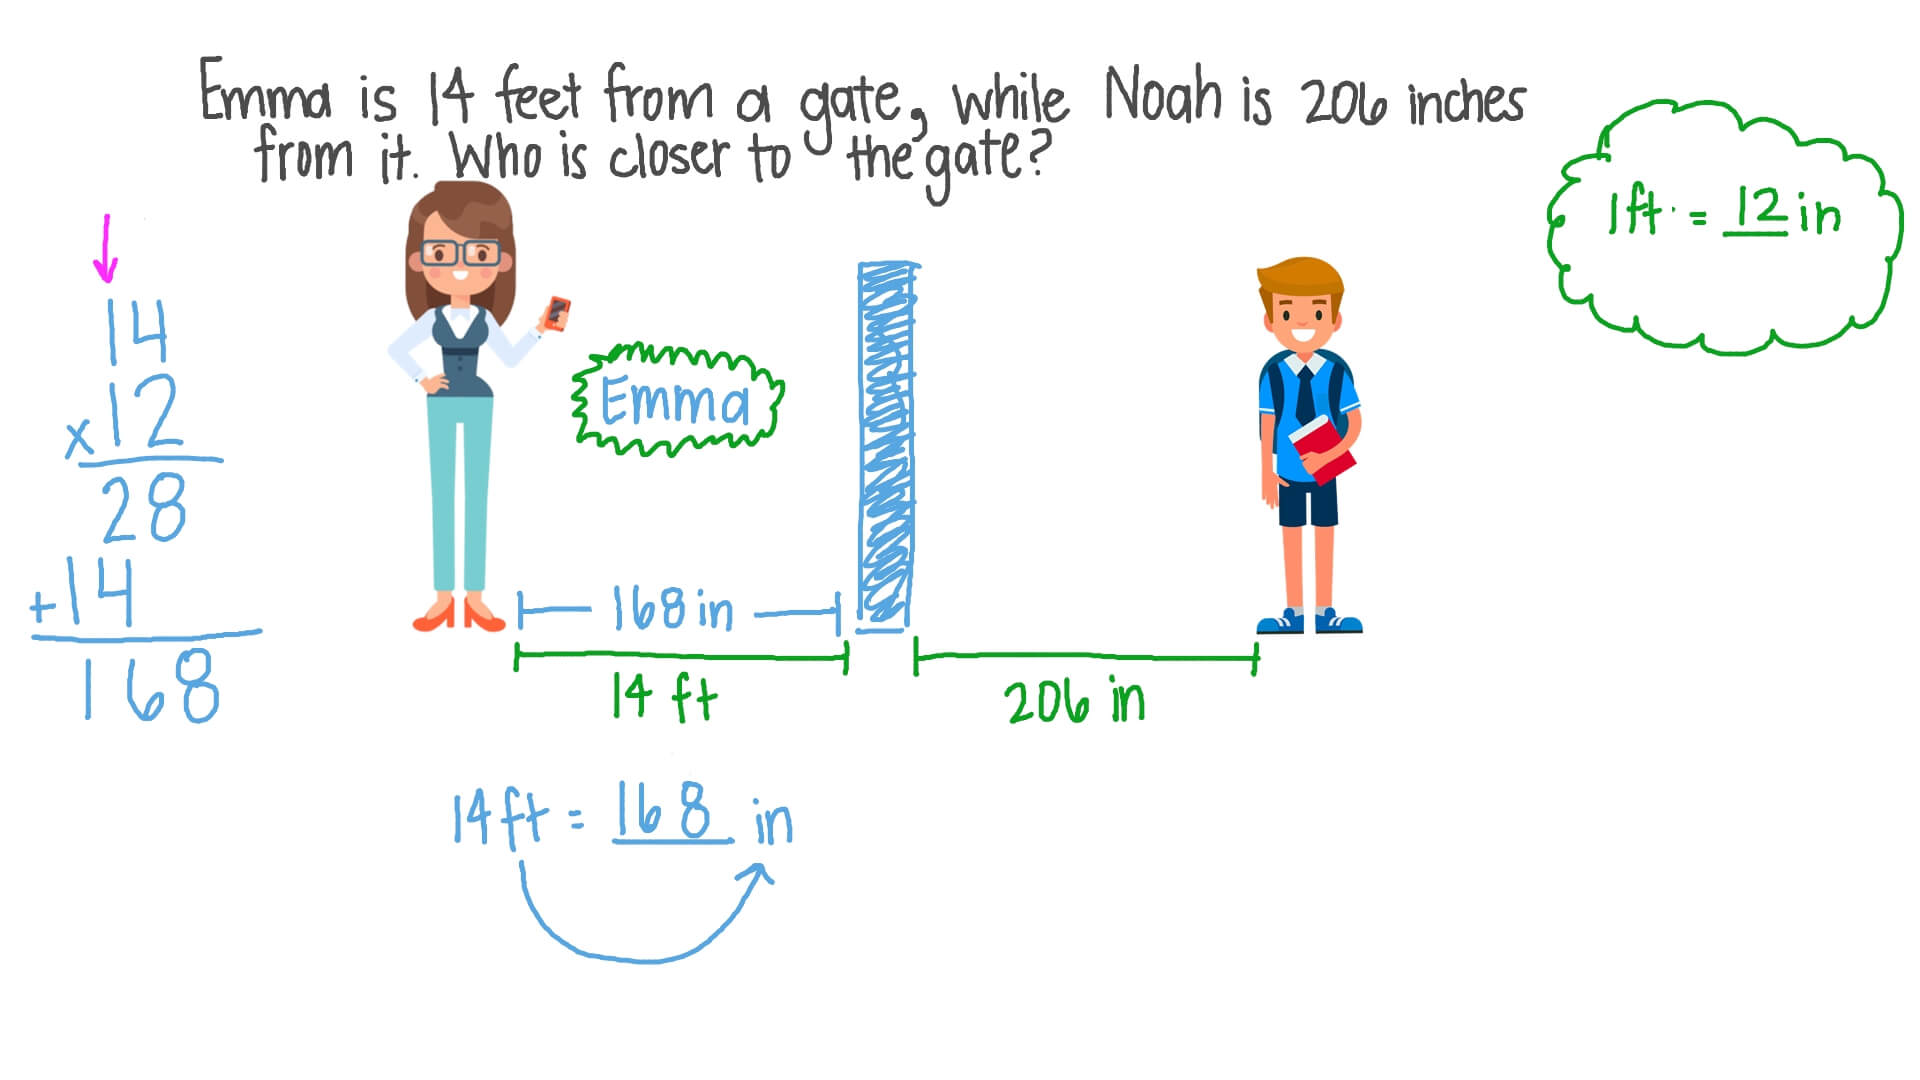 Emma is 14 feet from a gate, while Noah is 206 inches
from it. Who is closer to the gate?
1ft. = 12 in
14
x12
28
+14
168
Emma
168 in
14 ft
206 in
14ft = 168 in